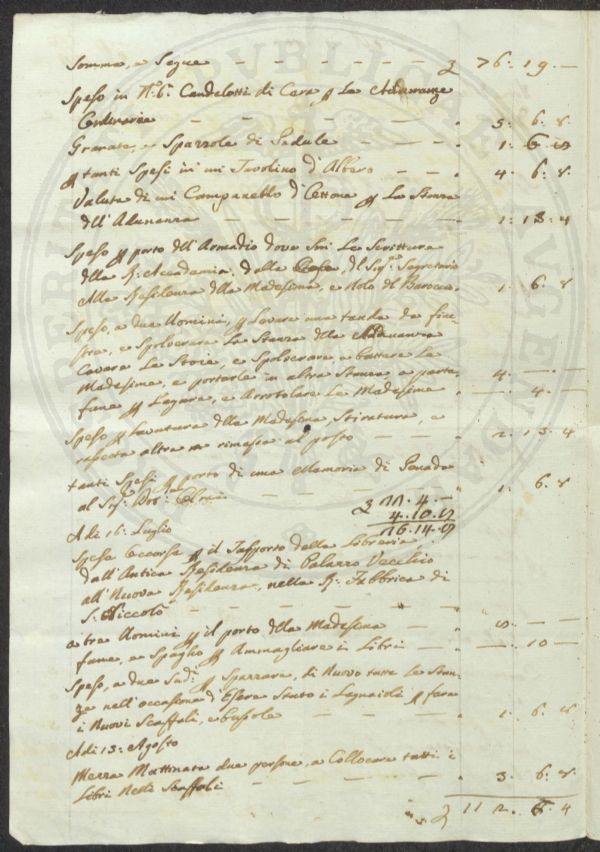 Somma, e Segue — — — — — — 76. 19. —
Speso in N.º 6. Candelotti di Cera p La Adunanze
Ordinarie — — — — — 5. 6. 8
Granata, e Spazzole di Padule — — — 1. 6. 8
p tanti Spesi in un Tavolino d'Albero — — 4. 6. 8
Valuta di un Campanello d'Ottone p La Stanza
dell'Adunanza — — — — — 1. 13. 4
Speso p porto dell'Armadio dove Sono Le Scritture
della R. Accademia, dalla Casa, del Sig.r Segretario
Alla Residenza della Medesima, e Nolo del Baroccio 1. 6. 8
Speso, a due Uomini, p Levare una tenda da fine-
stra, e Spolverare La Stanza della Adunanza
Cavare Le Stoie, e Spolverare, e battere Le
Medesime, e portarle in altra Stanza a parte 4. — —
fune p Legare, e Arrotolare Le Medesime — 4. —
Speso p Lavatura della Medesima, Stiratura, e
rimessa al posto — — — 2. 13. 4
tanti Spesi p porto di una Memoria di
al Sig.r Dot. — — — 1. 6. 8
11. 4. —
4. 10.
16. 14.
A di 16. Luglio
Spesa Occorsa p il Trasporto della Libreria
dall'Antica Residenza di Palazzo Vecchio
all'Nuova Residenza, nella R. Fabbrica di
S. Niccolò — — — — — —
a tre Uomini p il porto della Medesima — —
fune, e Spago p Ammagliare i Libri — — 10 —
Speso, a due Sud.i p Spazzare, di Nuovo tutte Le Stan-
ze nell'occasione d'Esere Stato i Legnaioli p fare
i Nuovi Scaffali, e bussole — — — 1. 6. 8
A di 13. Agosto
Mezza Mattinata due persone, a Collocare tutti i
Libri nelli Scaffali — — — — 3. 6. 8
112. 6. 4